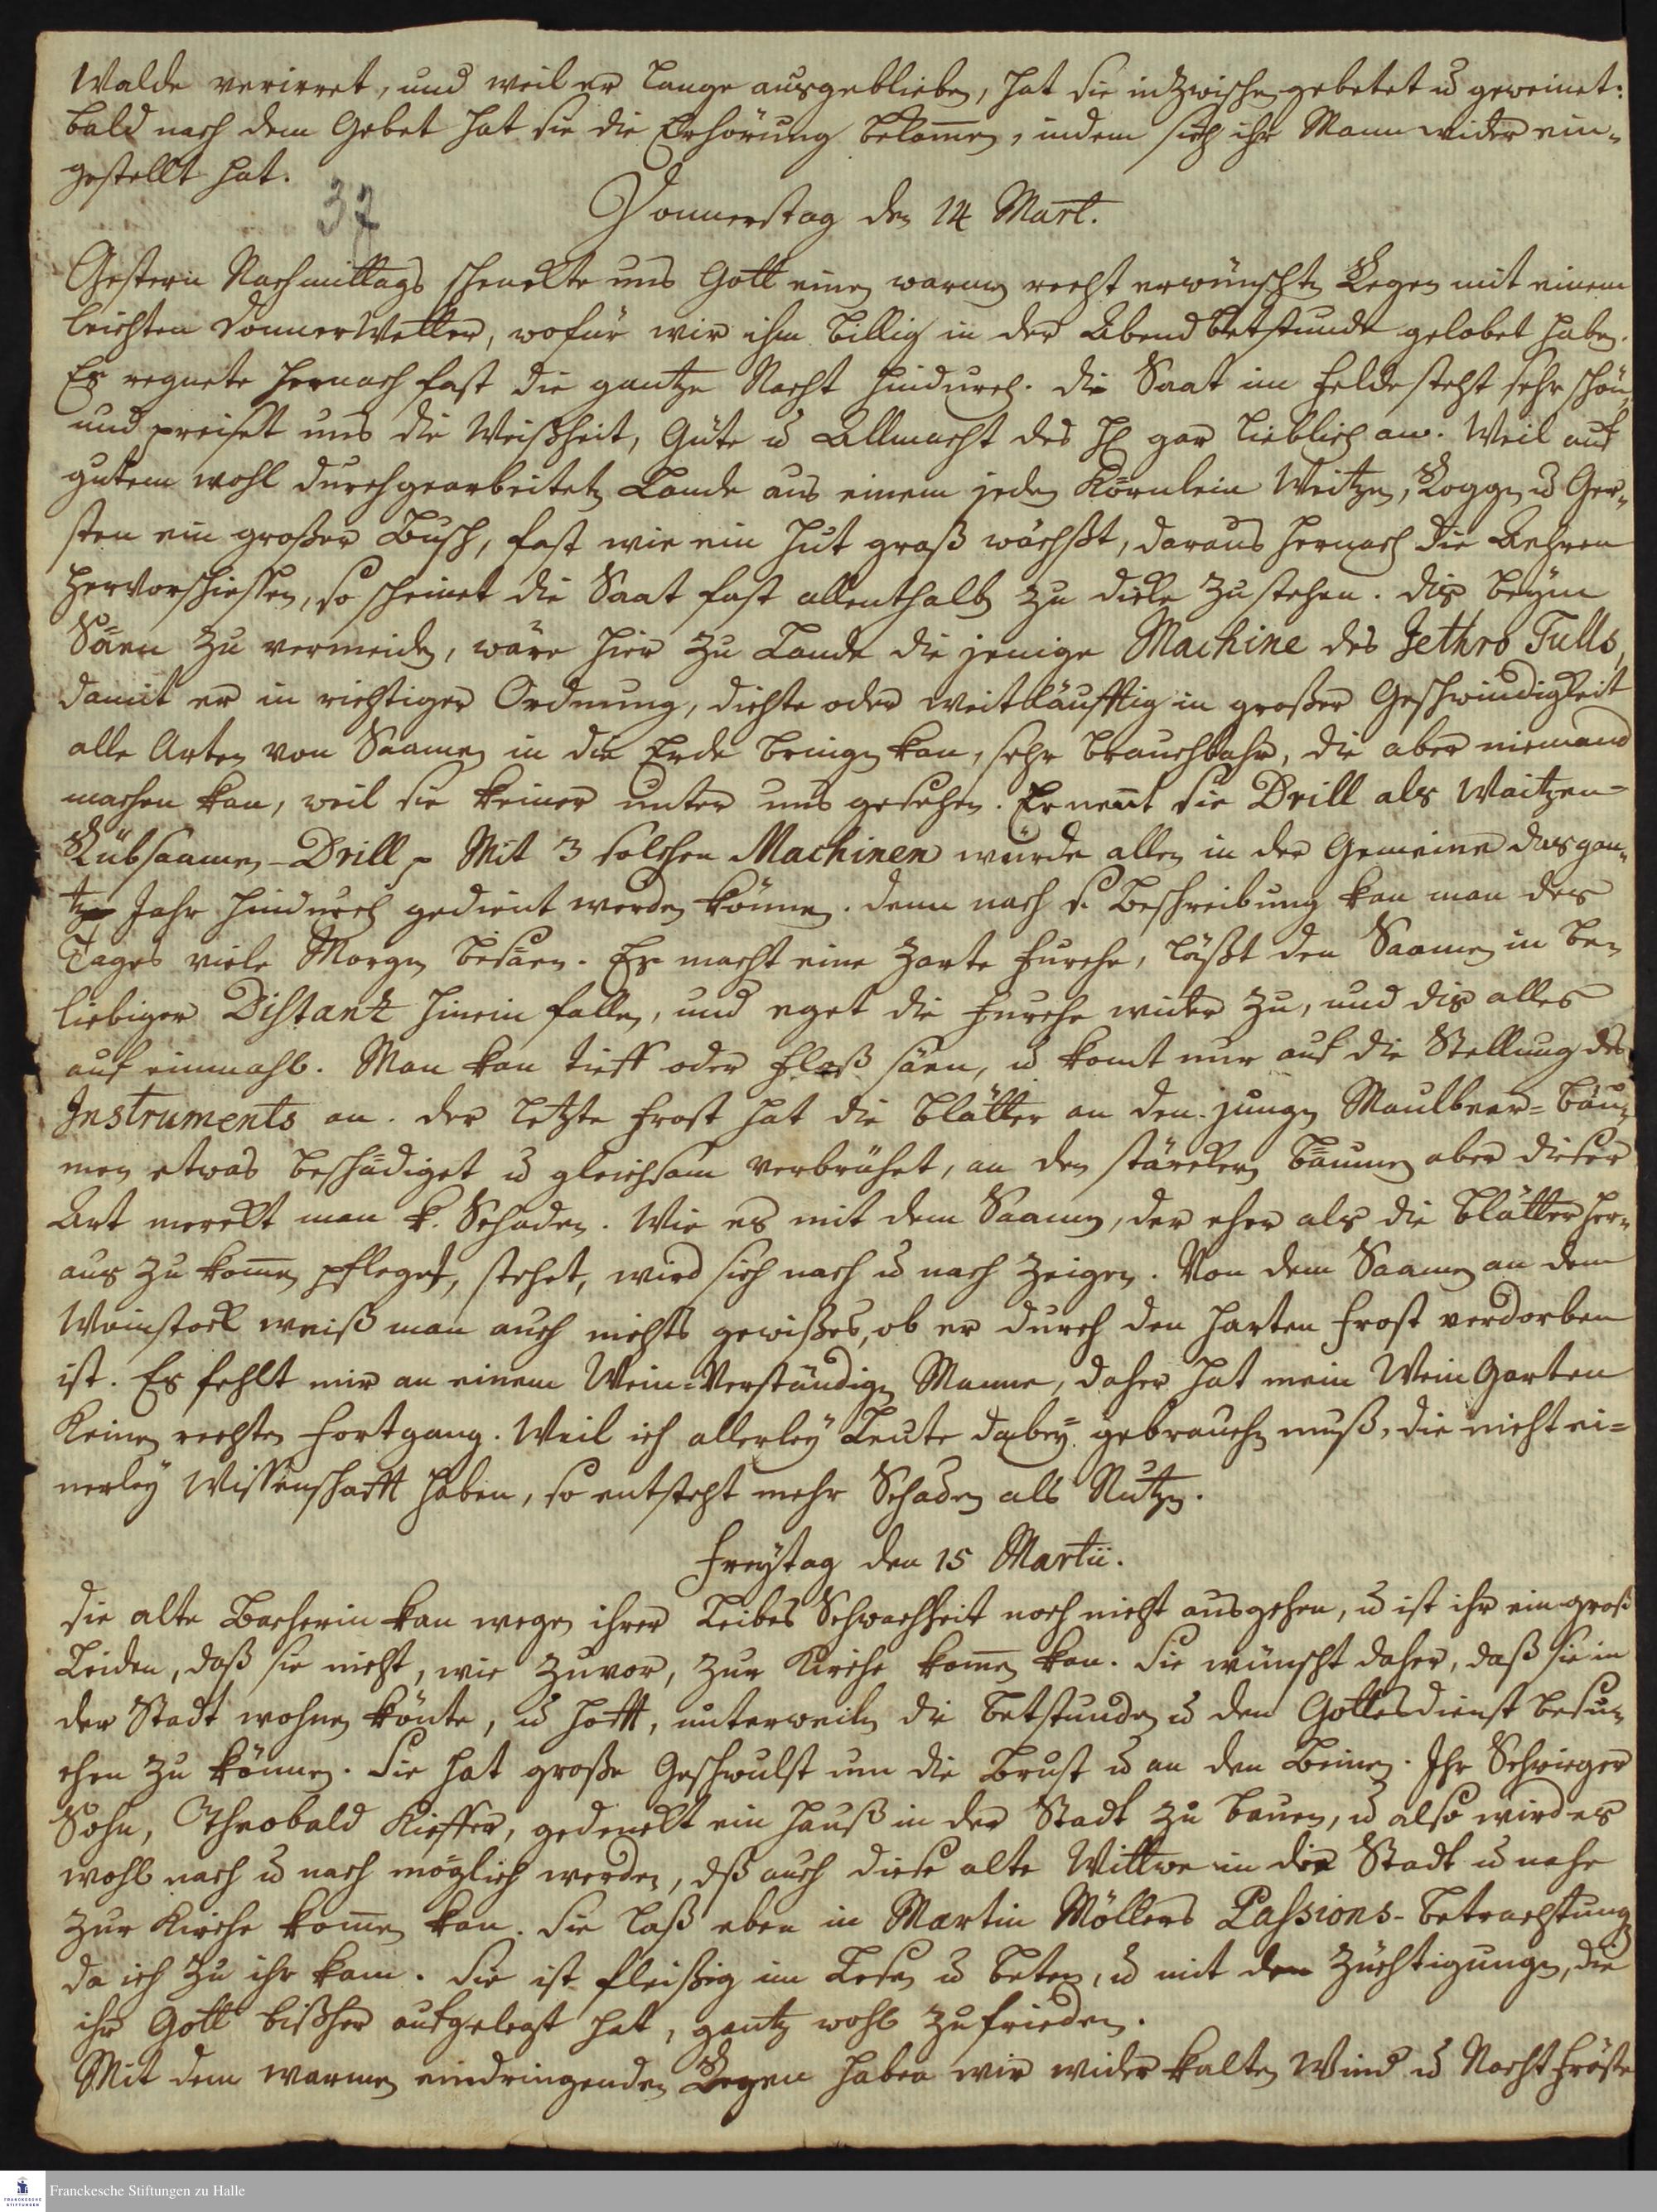 Walde verirret, und weil er lange ausgeblieben, hat sie indzwischen gebetet u. geweinet:
bald nach dem Gebet hat sie die Erhörung bekomen, indem sich ihr Mann wider ein„
gestellt hat.
37
Donnerstag den 14 Mart.
Gestern Nachmittags schenckte uns Gott einen warmen recht erwünschten Regen mit einem
leichten DonnerWetter, wofür wir ihn billig in der Abend Betstunde gelobet haben.
Es regnete hernach fast die gantze Nacht hindurch. Die Saat im Felde steht sehr schön,
und preiset uns die Weißheit, Güte u. Allmacht des H. gar lieblich an. Weil auf
gutem wohl durchgearbeiteten Lande aus einem jeden Körnlein Weitzen, Roggen u. Ger„
sten ein großer Busch, fast wie ein Hut groß wächßt, daraus hernach die Aehren
hervorschiessen, so scheinet die Saat fast allenthalben zu dicke zu stehen. Dis beym
Säen zu vermeiden, wäre hier zu Lande die jenige Machine des Jethro Tulls,
damit er in richtiger Ordnung, dichte oder weitläufftig in großer Geschwindigkeit
alle Arten von Saamen in die Erde bringen kan, sehr brauchbahr, die aber niemand
machen kan, weil sie keiner unter uns gesehen. Er nent sie Drill als Waitzen-
Rübsaamen-Drill p Mit 3 solchen Machinen würde allen in der Gemeine das gan„
tze Jahr hindurch gedient werden können. Denn nach s. Beschreibung kan man des
Tages viele Morgen besäen. Er macht eine zarte Furche, läßt den Saamen in be„
liebiger Distantz hinein fallen, und eget die Furche wider zu, und dis alles
auf einmahl. Man kan tieff oder floß säen, u. komt nur auf die Stellung des
Instruments an. Der letzte Frost hat die Blätter an den jungen Maulbeer-Bäu„
men etwas beschädiget u. gleichsam verbrühet, an den stärckern Bäumen aber dieser
Art merckt man k. Schaden. Wie es mit dem Saamen, der eher als die Blätter her„
aus zu komen pfleget, stehet, wird sich nach u. nach zeigen. Von dem Saamen an dem
Weinstock weiß man auch nichts gewißes, ob er durch den harten Frost verdorben
ist. Es fehlt mir an einem Wein-Verständigen Manne, daher hat mein WeinGarten
keinen rechten Fortgang. Weil ich allerley Leute dabey gebrauchen muß, die nicht ei=
nerley Wissenschafft haben, so entsteht mehr Schaden als Nutzen.
Freytag den 15 Martii.
Die alte Bacherin kan wegen ihrer Leibes Schwachheit noch nicht ausgehen, u. ist ihr ein groß
Leiden, daß sie nicht, wie zuvor, zur Kirche komen kan. Sie wünscht daher, daß sie in
der Stadt wohnen könte, u. hofft, unterweilen die Betstunden u. den Gottesdienst besu„
chen zu können. Sie hat große Geschwulst um die Brust u. an den Beinen. Ihr Schwieger
Sohn, Theobald Kieffer, gedenckt ein Hauß in der Stadt zu bauen, u. also wird es
wohl nach u. nach möglich werden, dß auch diese alte Wittwe in die Stadt u. nahe
zur Kirche komen kan. Sie laß eben in Martin Möllers Passions-Betrachtungen
da ich zu ihr kam. Sie ist fleißig im Lesen u. beten, u. mit den Züchtigungen, die
ihr Gott bißher aufgelegt hat, gantz wohl zufrieden.
Mit dem warmen eindringenden Regen haben wir wider kalten Wind u. Nachtfröste
Franckesche Stiftungen zu Halle
FRANCKESCHE STIFTUNGEN